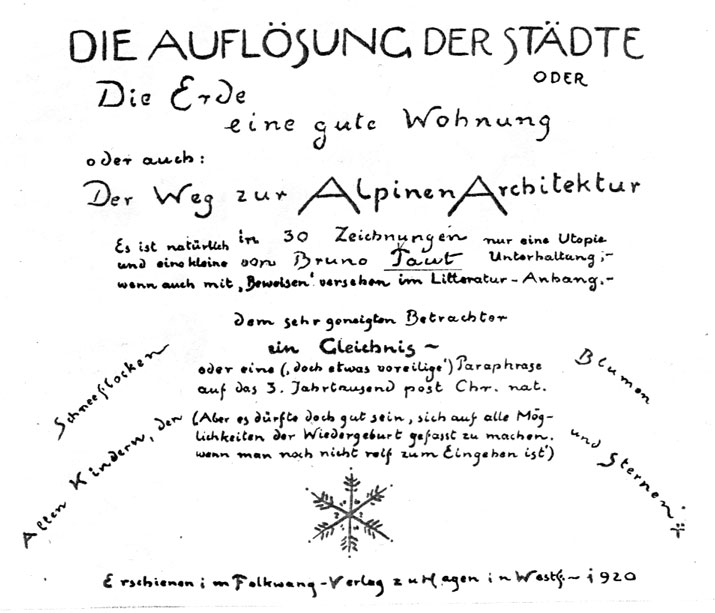 DIE AUFLÖSUNG DER STÄDTE
ODER
Die Erde
eine gute Wohnung
oder auch:
Der Weg zur Alpinen Architektur
in 30 Zeichnungen
von Bruno Taut
Es ist natürlich nur eine Utopie
und eine kleine Unterhaltung,-
wenn auch mit „Beweisen“ versehen im Litteratur-Anhang.-
dem sehr geneigten Betrachter
ein Gleichnis ~
oder eine („doch etwas voreilige“) Paraphrase
auf das 3. Jahrtausend post Chr. nat.
(Aber es dürfte doch gut sein, sich auf alle Mög-
lichkeiten der Wiedergeburt gefasst zu machen.
wenn man noch nicht reif zum Eingehen ist“)
Allen Kindern, den
Schneeflocken
Blumen
und Sternen
Erschienen im Folkwang-Verlag zu Hagen in Westf. ~ 1920